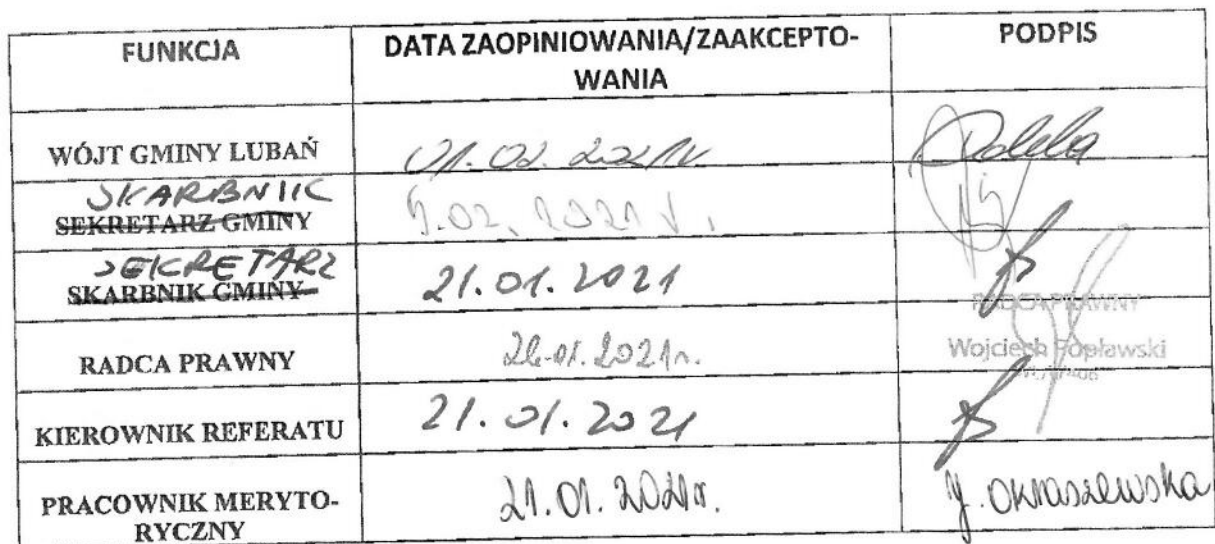 FUNKCJA
DATA ZAOPINIOWANIA/ZAAKCEPTO-
WANIA
PODPIS
WÓJT GMINY LUBAŃ
01.02.2021r
SKARBNIK
SEKRETARZ GMINY
02. 2021 r.
SEKRETARZ
SKARBNIK GMINY
21.01.2021
RADCA PRAWNY
Wojciech Popławski
RADCA PRAWNY
26.01.2021r.
KIEROWNIK REFERATU
21.01.2021
PRACOWNIK MERYTO-
RYCZNY
21.01.2021r.
J. Okraszewska